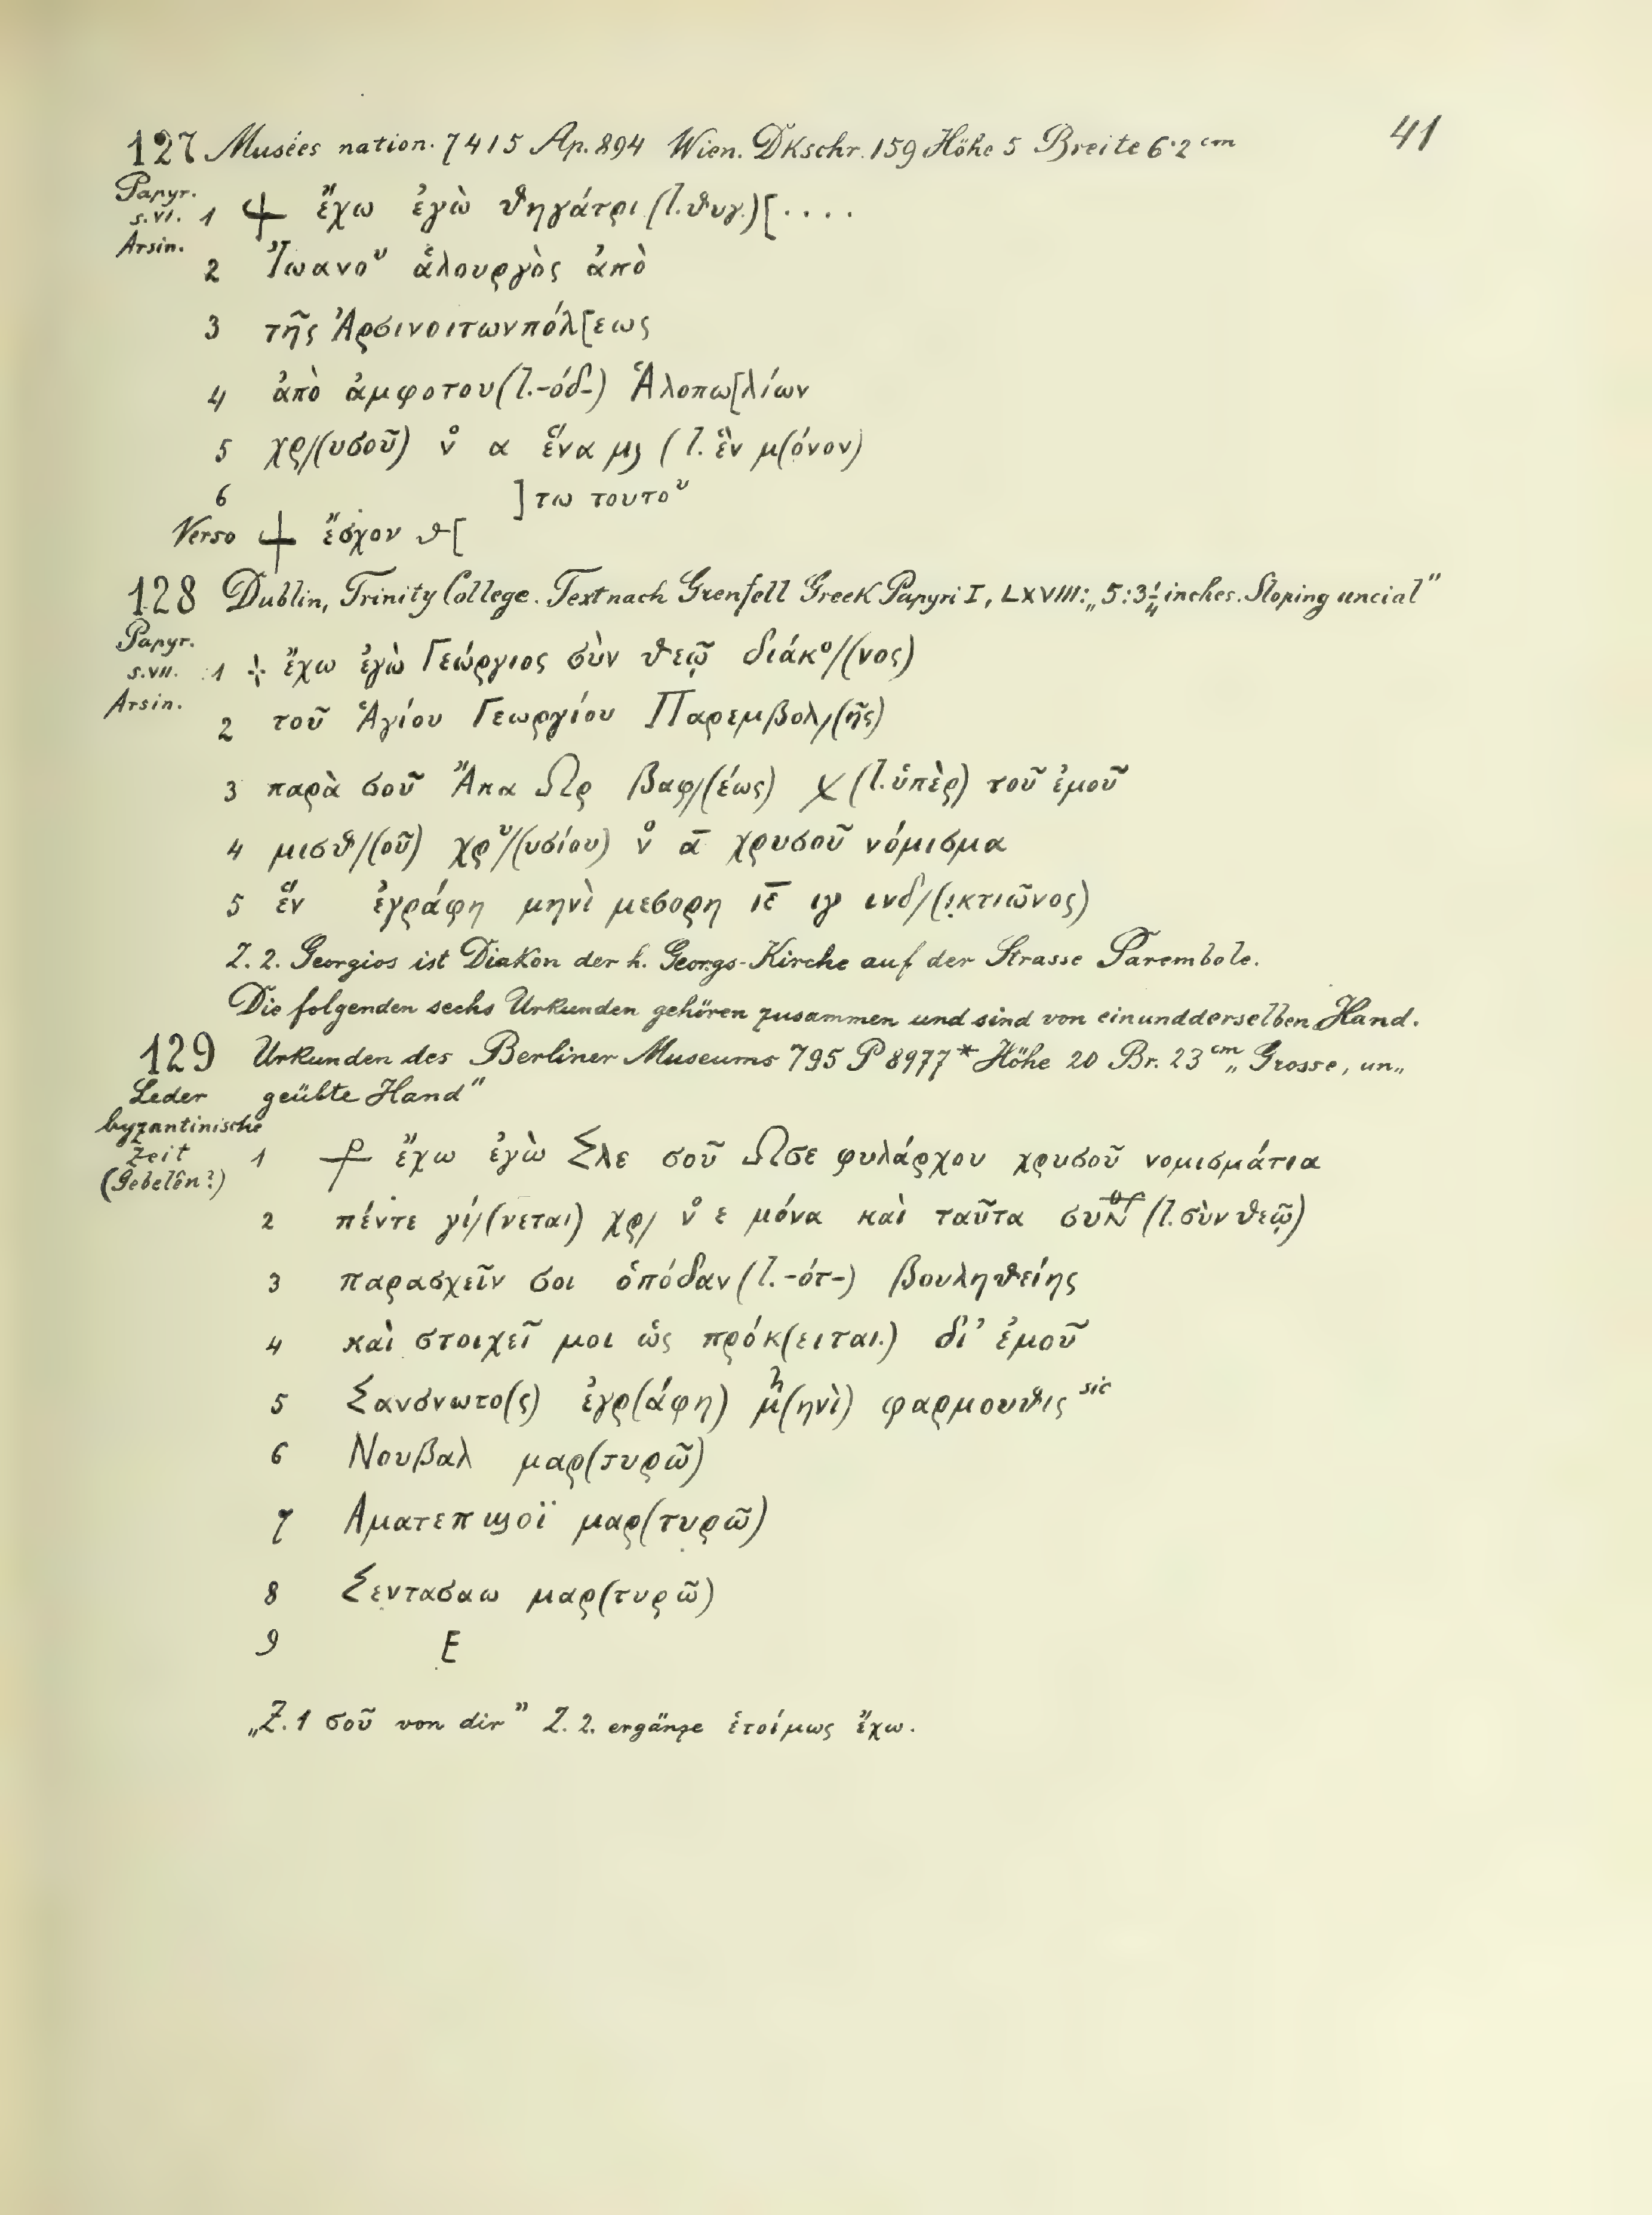 41
127 Musées nation. 7415 Ap. 894 Wien. Dkschr. 159 Höhe 5 Breite 6·2 cm
Papyr.
s. VI.
Arsin.
1 ⳨ ἔχω ἐγὼ θηγάτρι (l. θυγ.) [....
2 Ἰωανοῦ ἁλουργὸς ἀπὸ
3 τῆς Ἀρσινοιτωνπόλ[εως
4 ἀπὸ ἀμφοτου (l. -όδ-) Ἁλοπω[λίων
5 χρ/(υσοῦ) ν̊ α ἕνα μʒ (l. ἓν μ(όνον)
6 ]τω τουτοῦ
Verso ⳨ ἔσχον θ[
128 Dublin, Trinity College. Text nach Grenfell Greek Papyri I, LXVIII: „5:3¼ inches. Sloping uncial"
Papyr.
s. VII.
Arsin.
1 ⳨ ἔχω ἐγὼ Γεώργιος σὺν θεῷ διάκº/(νος)
2 τοῦ Ἁγίου Γεωργίου Παρεμβολ/(ῆς)
3 παρὰ σοῦ Ἄπα Ὡρ βαφ/(έως) χ (l. ὑπὲρ) τοῦ ἐμοῦ
4 μισθ/(οῦ) χρυ/(υσίου) ν̊ ᾱ χρυσοῦ νόμισμα
5 ἕν ἐγράφη μηνὶ μεσορη ιε̅ ιγ ινδ/(ικτιῶνος)
Z. 2. Georgios ist Diakon der h. Georgs-Kirche auf der Strasse Parembole.
Die folgenden sechs Urkunden gehören zusammen und sind von einundderselben Hand.
129 Urkunden des Berliner Museums 795 P 8977* Höhe 20 Br. 23 cm „Grosse, un„
geübte Hand"
Leder
byzantinische
Zeit
(Gebelên?)
1 ⳨ ἔχω ἐγὼ Σλε σοῦ Ωσε φυλάρχου χρυσοῦ νομισμάτια
2 πέντε γί/(νεται) χρ/ ν̊ ε μόνα καὶ ταῦτα συν (l. σὺν θεῷ)
3 παρασχεῖν σοι ὁπόδαν (l. -ότ-) βουληθείης
4 καὶ στοιχεῖ μοι ὡς πρόκ(ειται.) δι' ἐμοῦ
5 Σανσνωτο(ς) ἐγρ(άφη) μ(ηνὶ) φαρμουθις sic
6 Νουβαλ μαρ(τυρῶ)
7 Αματεπϣοϊ μαρ(τυρῶ)
8 Σεντασαω μαρ(τυρῶ)
9 E
„Z. 1 σοῦ von dir" Z. 2. ergänze ἑτοίμως ἔχω.